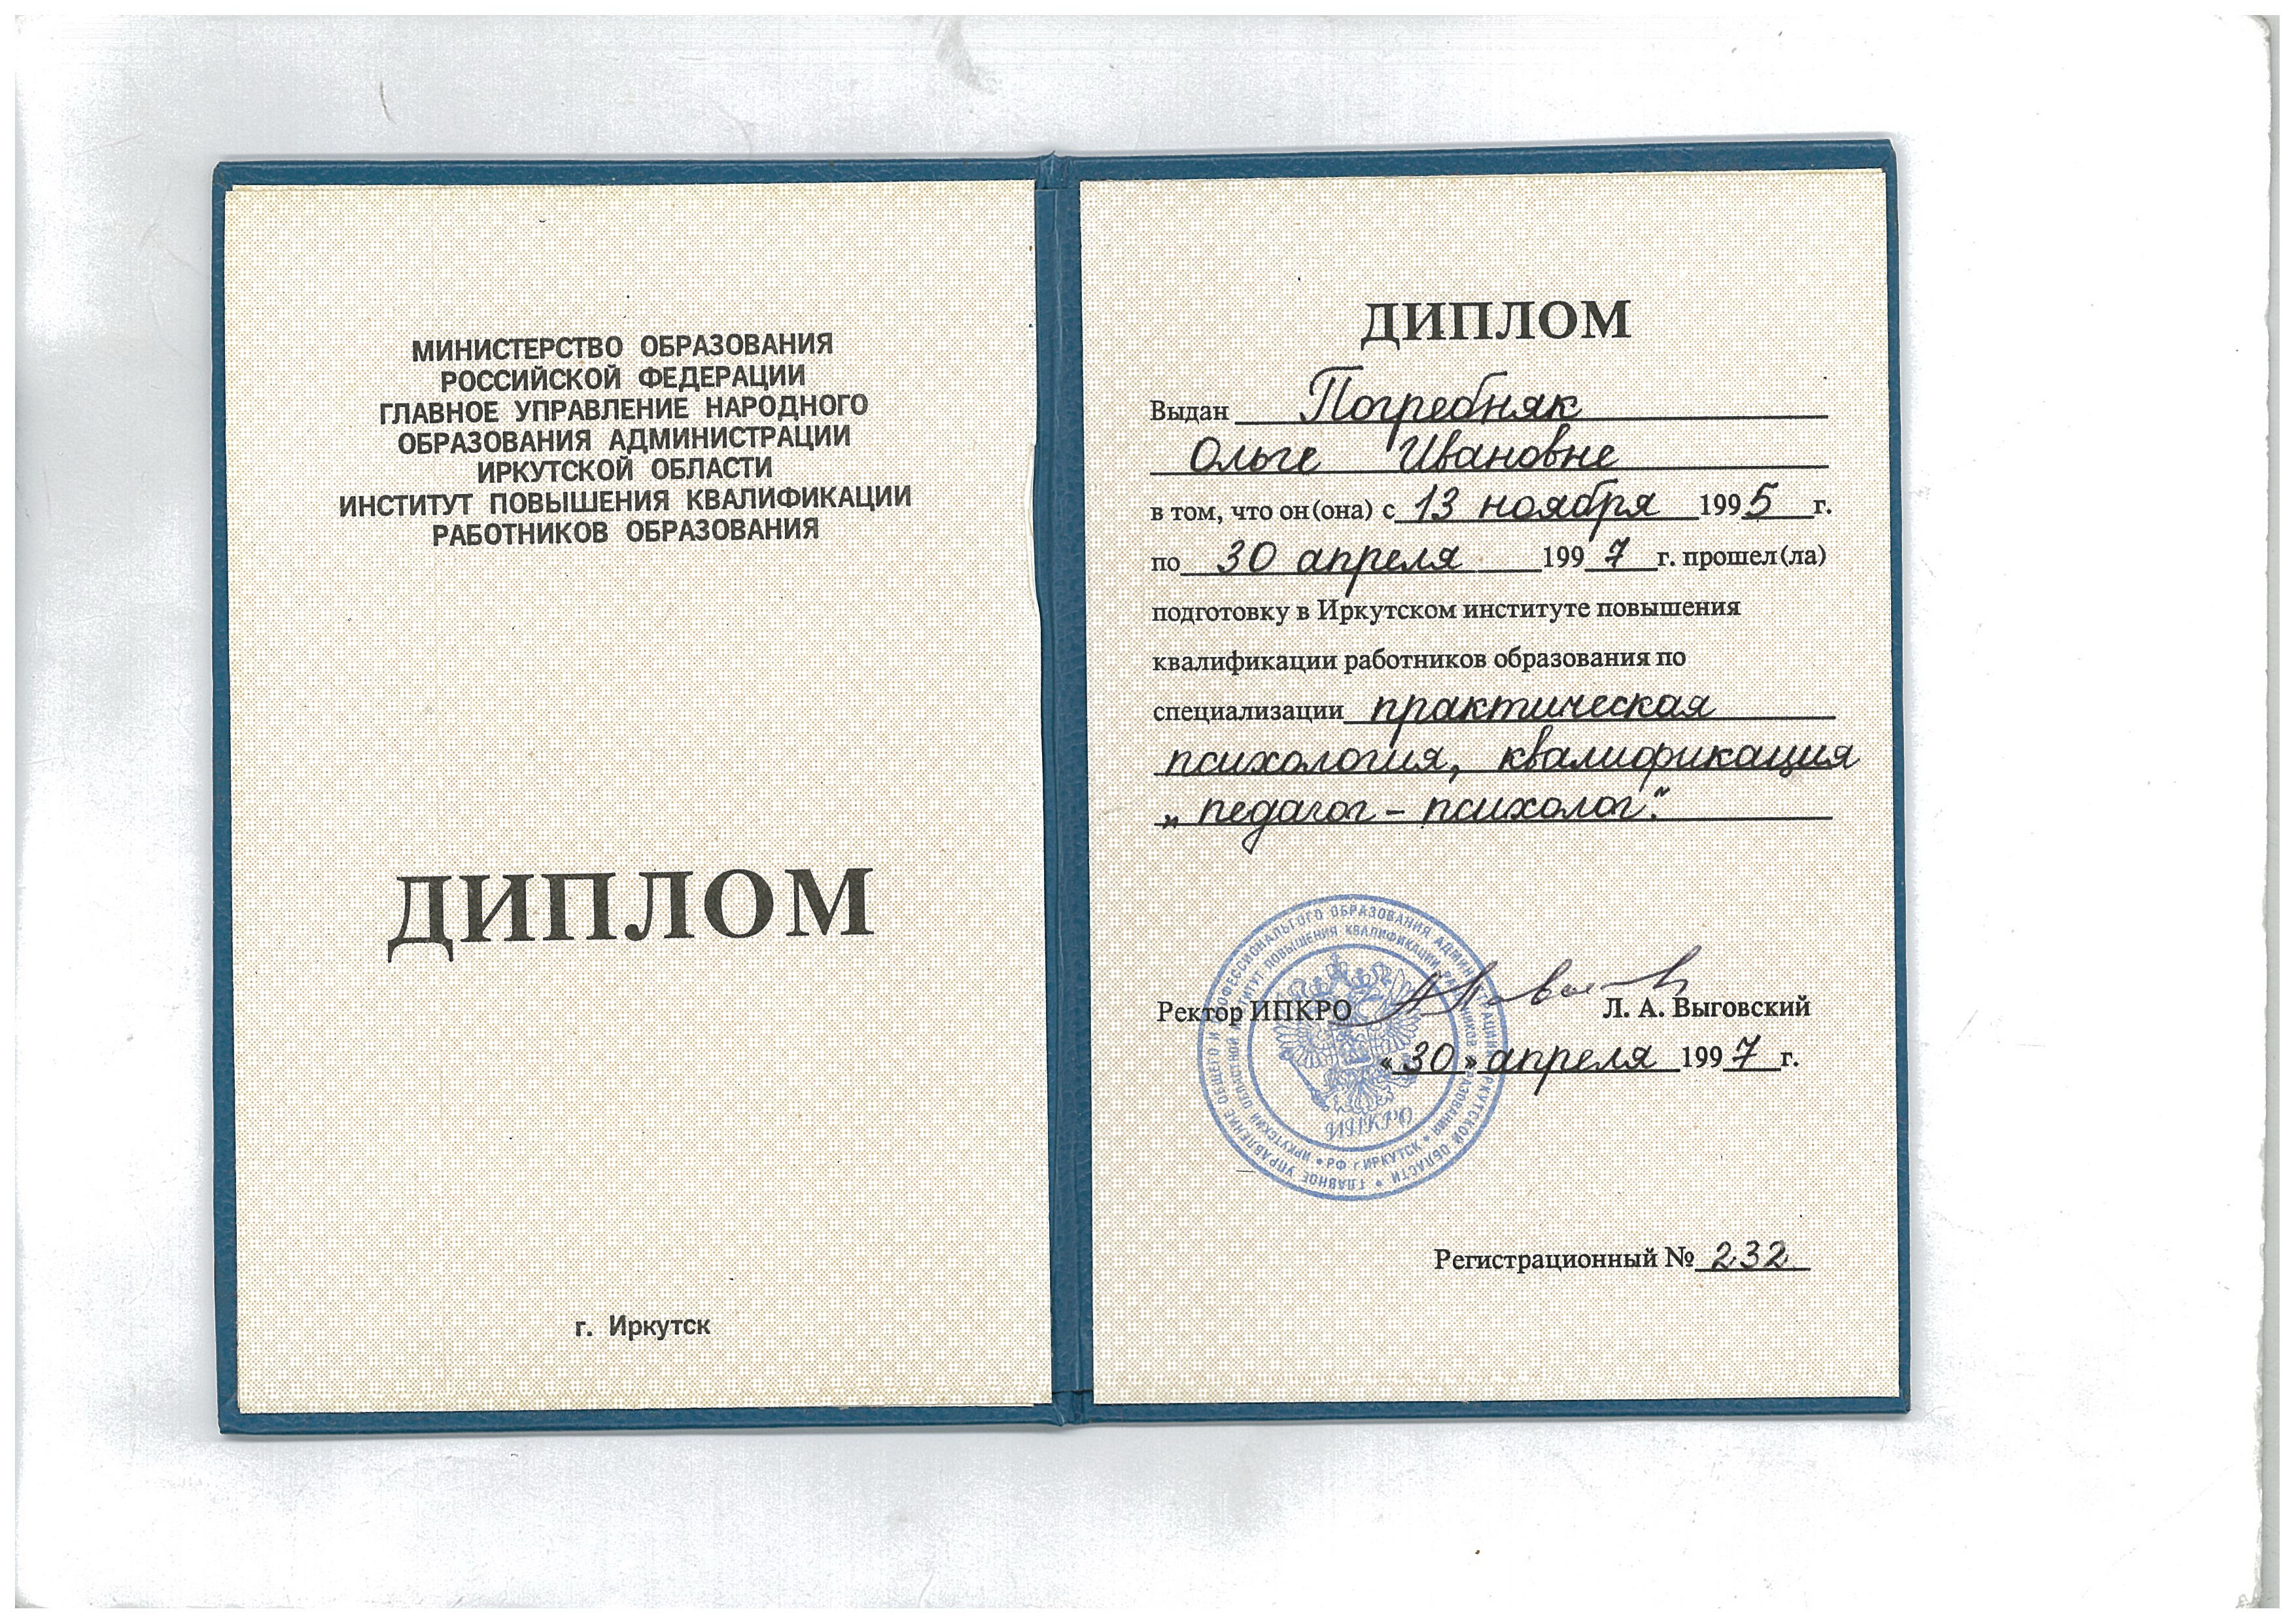 МИНИСТЕРСТВО ОБРАЗОВАНИЯ
РОССИЙСКОЙ ФЕДЕРАЦИИ
ГЛАВНОЕ УПРАВЛЕНИЕ НАРОДНОГО
ОБРАЗОВАНИЯ АДМИНИСТРАЦИИ
ИРКУТСКОЙ ОБЛАСТИ
ИНСТИТУТ ПОВЫШЕНИЯ КВАЛИФИКАЦИИ
РАБОТНИКОВ ОБРАЗОВАНИЯ
ДИПЛОМ
г. Иркутск
ДИПЛОМ
Выдан Погребняк
Ольге Ивановне
в том, что он(она) с 13 ноября 1995 г.
по 30 апреля 1997 г. прошел(ла)
подготовку в Иркутском институте повышения
квалификации работников образования по
специализации практическая
психология, квалификация
„педагог-психолог."
Ректор ИПКРО Л. А. Выговский
«30» апреля 1997 г.
ГЛАВНОЕ УПРАВЛЕНИЕ ОБЩЕГО И ПРОФЕССИОНАЛЬГОГО ОБРАЗОВАНИЯ АДМИНИСТРАЦИИ ИРКУТСКОЙ ОБЛАСТИ
ИРКУТСКИЙ ОБЛАСТНОЙ ИНСТИТУТ ПОВЫШЕНИЯ КВАЛИФИКАЦИИ РАБОТНИКОВ ОБРАЗОВАНИЯ
РФ г. ИРКУТСК
ИПКРО
Регистрационный № 232